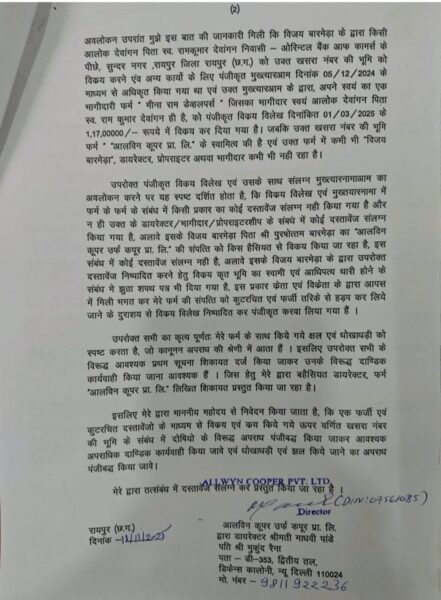 (2)
अवलोकन उपरांत मुझे इस बात की जानकारी मिली कि विजय बारमेड़ा के द्वारा किसी
आलोक देवांगन पिता स्व. रामकुमार देवांगन निवासी – ओरिन्टल बैंक आफ कामर्स के
पीछे, सुन्दर नगर ,रायपुर जिला रायपुर (छ.ग.) को उक्त खसरा नंबर की भूमि को
विक्रय करने एंव अन्य कार्यो के लिए पंजीकृत मुख्त्यारनाम दिनांक 05/12/2024 के
माध्यम से अधिकृत किया गया था एवं उक्त मुख्त्यारआम के द्वारा, अपने स्वयं का एक
भागीदारी फर्म " मीना राम डेव्हलपर्स " जिसका भागीदार स्वयं आलोक देवांगन पिता
स्व. राम कुमार देवांगन ही है, को पंजीकृत विक्रय विलेख दिनांकित 01/03/2025 के
1,17,00000/– रूपये में विक्रय कर दिया गया है। जबकि उक्त खसरा नंबर की भूमि
फर्म " "आलविन कूपर प्रा. लि." के स्वामित्व की है एवं उक्त फर्म में कभी भी "विजय
बारमेड़ा", डायरेक्टर, प्रोपराइटर अथवा भागीदार कभी भी नही रहा है।
उपरोक्त पंजीकृत विक्रय विलेख एवं उसके साथ संलग्न मुख्त्यारनामाआम का
अवलोकन करने पर यह स्पष्ट दर्शित होता है, कि विक्रय विलेख एवं मुख्तयारनामा में
फर्म के फर्म के संबंध में किसी प्रकार का कोई दस्तावेज संलग्न नही किया गया है और
न ही उक्त के डायरेक्टर/भागीदार/प्रोपराइटरशीप के संबंध में कोई दस्तावेज संलग्न
किया गया है, अलावे इसके विजय बारमेड़ा पिता श्री पुरषोत्तम बारमेड़ा का "आलविन
कूपर उर्फ कपूर प्रा. लि." की संपत्ति को किस हैसियत से विक्रय किया जा रहा है, इस
संबंध में कोई दस्तावेज संलग्न नही है, अलावे इसके विजय बारमेड़ा के द्वारा उपरोक्त
दस्तावेज निष्पादित करने हेतु विक्रय कृत भूमि का स्वामी एवं आधिपत्य धारी होने के
संबंध मे झुठा शपथ पत्र भी दिया गया है, इस प्रकार क्रेता एवं विक्रेता के द्वारा आपस
में मिली भगत कर मेरे फर्म की संपत्ति को कुटरचित एवं फर्जी तरिके से हड़प कर लिये
जाने के दुराशय से विक्रय विलेख निष्पादित कर पंजीकृत करवा लिया गया हैं ।
उपरोक्त सभी का कृत्य पूर्णतः मेरे फर्म के साथ किये गये क्षल एवं धोखाधड़ी को
स्पष्ट करता है, जो कानूनन अपराध की श्रेणी में आता हैं । इसलिए उपरोक्त सभी के
विरूद्ध आवश्यक प्रथम सूचना शिकायत दर्ज किया जाकर उनके विरूद्ध दाण्डिक
कार्यवाही किया जाना आवश्यक हैं । जिस हेतु मेरे द्वारा बहैसियत डायरेक्टर, फर्म
"आलविन कूपर प्रा. लि." लिखित शिकायत प्रस्तुत किया जा रहा है।
इसलिए मेरे द्वारा माननीय महोदय से निवेदन किया जाता है, कि एक फर्जी एवं
कुटरचित दस्तावेजो के माध्यम से विक्रय एवं क्रय किये गये ऊपर वर्णित खसरा नंबर
की भूमि के संबंध में दोषियो के विरूद्ध अपराध पंजीबद्ध किया जाकर आवश्यक
अपराधिक दाण्डिक कार्यवाही किया जावे एवं धोखाधड़ी एवं क्षल किये जाने का अपराध
पंजीबद्ध किया जावे।
मेरे द्वारा तत्संबंध में दस्तावेज संलग्न कर प्रस्तुत किया जा रहा है ।
ALLWYN COOPER PVT. LTD.
(DIN:07561085)
Director
रायपुर (छ.ग.)
दिनांक -11/11/2025
आलविन कूपर उर्फ कपूर प्रा. लि.
द्वारा डायरेक्टर श्रीमती माधवी पांडे
पति श्री मुकुंद रैना
पता – डी-353, द्वितीय तल,
डिफेन्स कालोनी, न्यू दिल्ली 110024
मो. नंबर – 9811922236